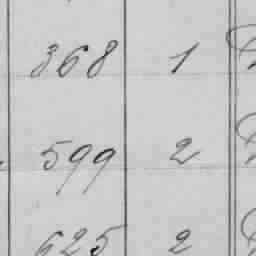 368 1
599 2
625 2